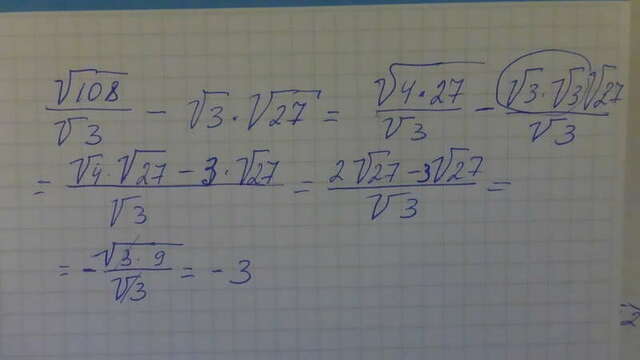 √108/√3 − √3·√27 = √4·27/√3 − √3·√3√27/√3
= √4·√27 − 3·√27/√3 = 2√27 − 3√27/√3 =
= −√3·9/√3 = −3